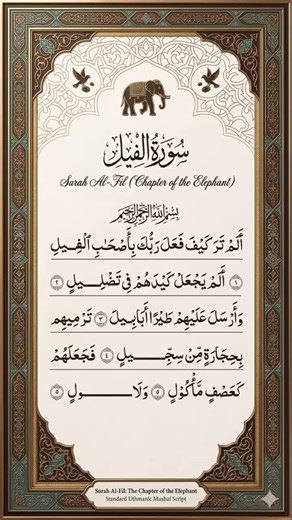 سُورَةُ الْفِيلِ
Surah Al-Fil (Chapter of the Elephant)
بِسْمِ اللَّهِ الرَّحْمَٰنِ الرَّحِيمِ
أَلَمْ تَرَ كَيْفَ فَعَلَ رَبُّكَ بِأَصْحَٰبِ ٱلْفِيلِ
١ أَلَمْ يَجْعَلْ كَيْدَهُمْ فِى تَضْلِيلٍ ٢
وَأَرْسَلَ عَلَيْهِمْ طَيْرًا أَبَابِيلَ ٣ تَرْمِيهِم
بِحِجَارَةٍ مِّن سِجِّيلٍ ٤ فَجَعَلَهُمْ
كَعَصْفٍ مَّأْكُولٍ ٥ وَلَا سولٍ ٥
Surah Al-Fil: The Chapter of the Elephant
Standard Uthmanic Mushaf Script